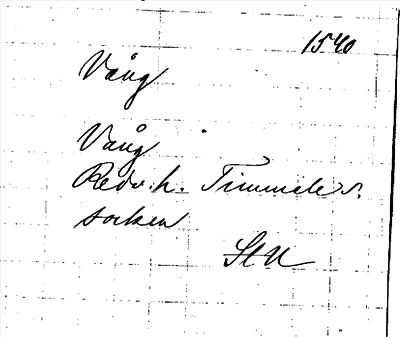 1540
Vång
Vång
Redv. h. Timmele s.
socken
StU